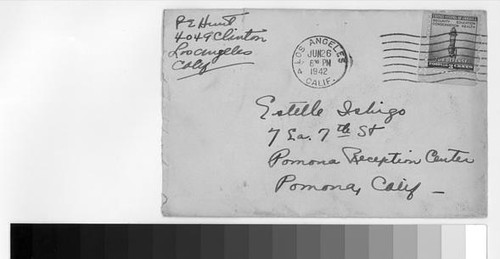 P E Hunt
4049 Clinton
Los Angeles
Calif
LOS ANGELES
JUN 26
6 30 PM
1942
CALIF.
Estelle Ishigo
7 La. 7th St
Pomona Reception Center
Pomona, Calif —